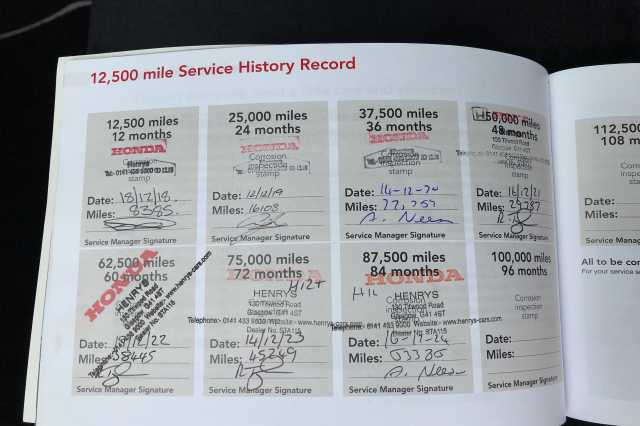 12,500 mile Service History Record
12,500 miles
12 months
HONDA
Henrys
Date: 18/12/18.
Miles: 8385.
Service Manager Signature
25,000 miles
24 months
HONDA
Corrosion
inspection
stamp
Date: 12/12/19
Miles: 16103
Service Manager Signature
37,500 miles
36 months
HONDA
Corrosion
inspection
stamp
Date: 14-12-20
Miles: 22,757
A. Nees
Service Manager Signature
50,000 miles
48 months
Date: 16/12/21
Miles:
Service Manager Signature
62,500 miles
60 months
HONDA
HENRYS
Date: /12/22
Miles: 38445
Service Manager Signature
75,000 miles
72 months
HONDA
H12+
HENRYS
130 Titwood Road
Glasgow G41 4ST
Telephone:- 0141 433 9000 Website:- www.henrys-cars.com
Dealer No. STA118
Date: 14/12/23
Miles: 45249
Service Manager Signature
87,500 miles
84 months
HONDA
HENRYS
130 Titwood Road
Glasgow G41 4ST
Telephone:- 0141 433 9000 Website:- www.henrys-cars.com
Dealer No. STA118
Date: 16-12-24
Miles: 53336
A. Nees
Service Manager Signature
100,000 miles
96 months
Corrosion
inspection
stamp
Date:
Miles:
Service Manager Signature
112,500
108 m
Date:
Miles:
Service Manager
All to be co
For your service s